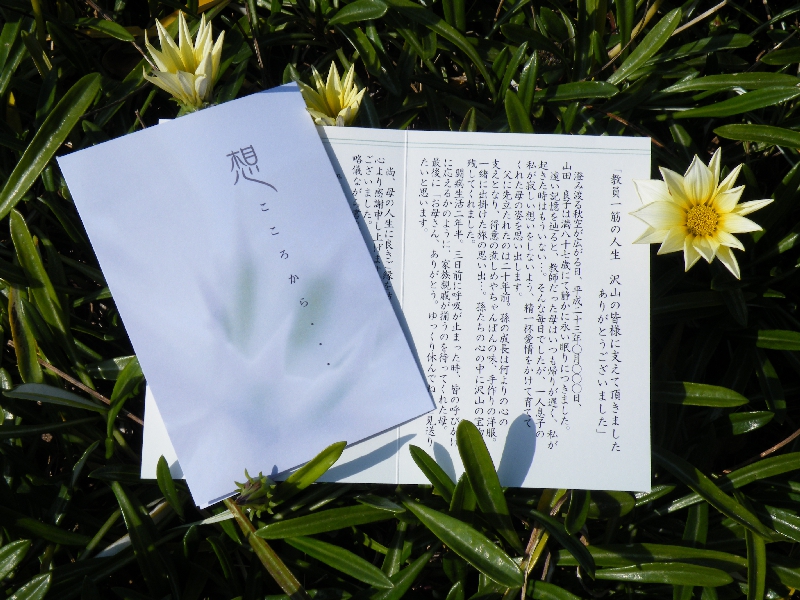 想
こころから・・・
「教員一筋の人生 沢山の皆様に支えて頂きました
ありがとうございました」
澄み渡る秋空が広がる日、平成二十三年〇月〇〇日、
山田 良子は満八十七歳にて静かに永い眠りにつきました。
遠い記憶を辿ると、教師だった母はいつも帰りが遅く、私が
起きた時にはもういない…。そんな毎日でしたが、一人息子の
私が寂しい想いをしないよう、精一杯愛情をかけて育てて
くれた母の姿を思い出します。
父に先立たれたのは二十年前。孫の成長は何よりの心の
支えとなり、得意の煮しめやちゃんぽんの味、手作りの洋服。
一緒に出掛けた旅の思い出…。孫たちの心の中に沢山の宝物
残してくれました。
闘病生活二年半。三日前に呼吸が止まった時、皆の呼びかけ
に応えるかのように、家族親戚が揃うのを待ってくれた母。
最後に「お母さん、ありがとう。ゆっくり休んでね」見送り
たいと思います。
尚、母の人生に良きご縁を
心より感謝申し上げま
ございました。
略儀なが